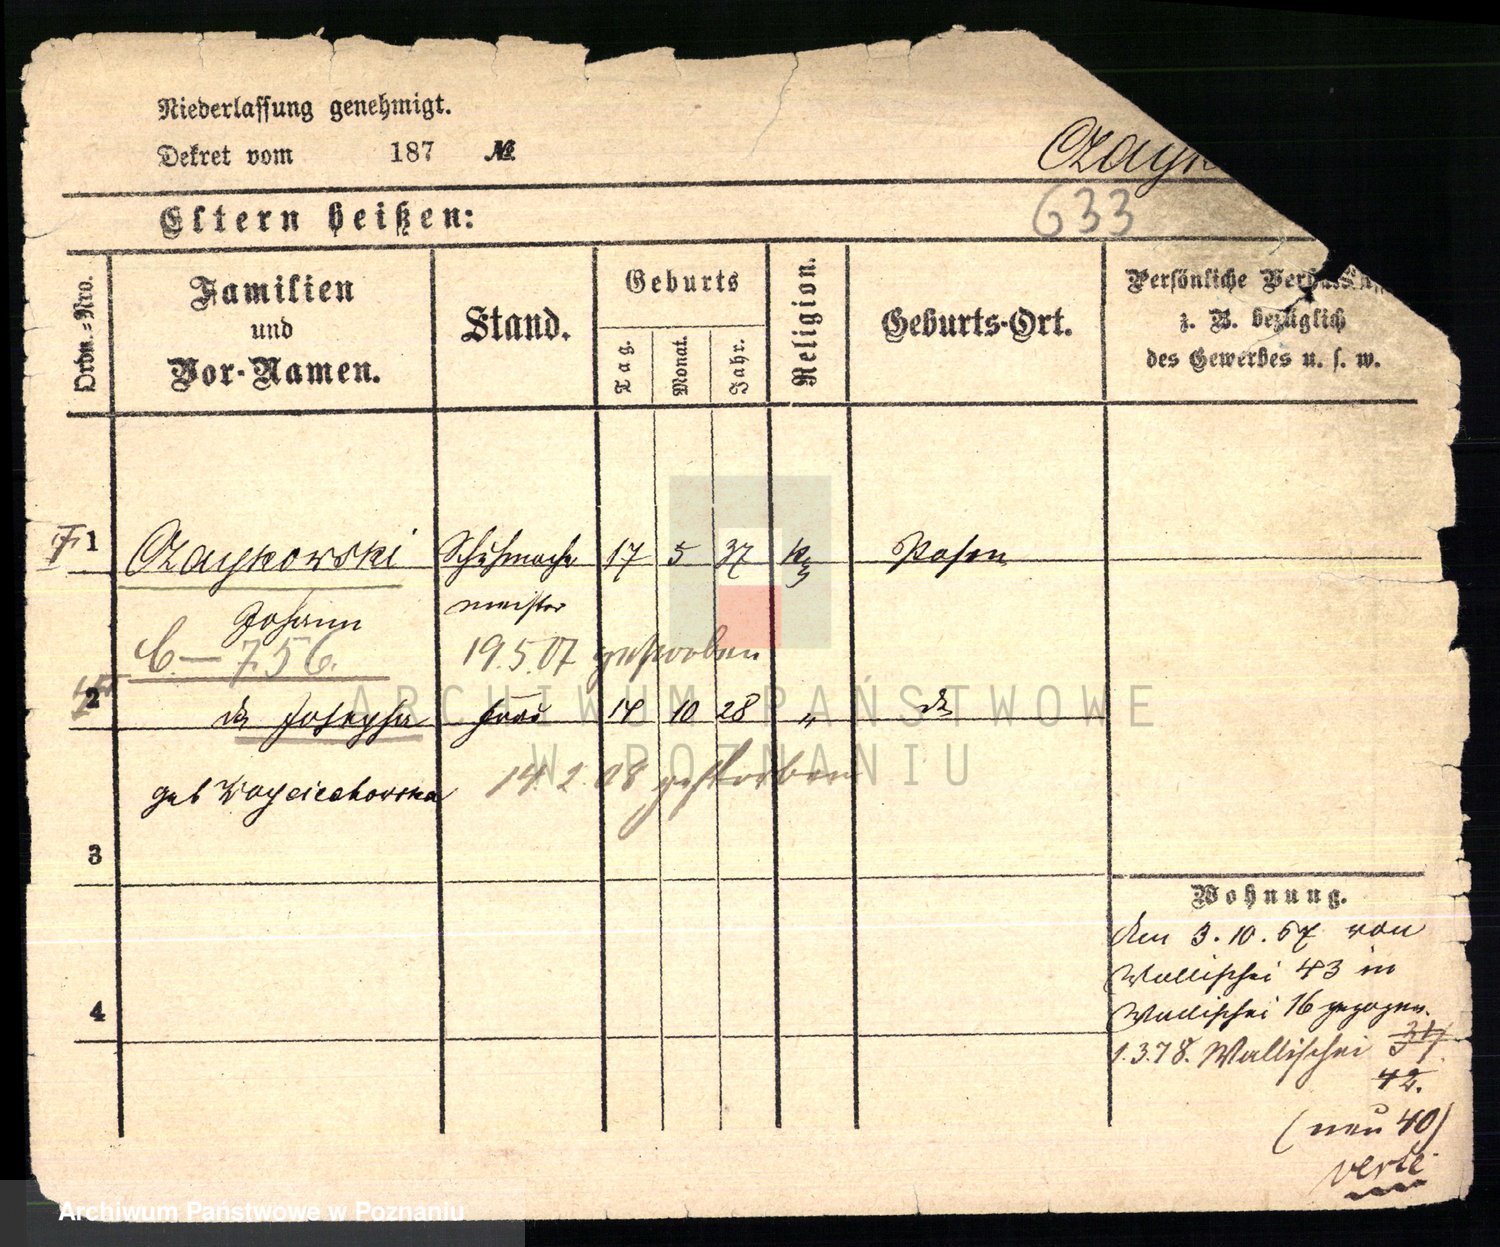 Niederlassung genehmigt.
Dekret vom 187 №
Czayk
633
Eltern heißen:
Ordn.=Nro.
Familien
und
Vor-Namen.
Stand.
Geburts
Tag.
Monat.
Jahr.
Religion.
Geburts-Ort.
Persönliche
z. B. bezüglich
des Gewerbes u. s. w.
1 Czaykowski Schuhmache 17 5 37 Posen
Johann meister
C.— 756. 19.5.07 gestorben
2 do Josepha Frau 14 10 28 " do
geb Woyciechowska 14.2.08 gestorben
3
4
Wohnung.
den 3.10.67 von
Wallischei 43 in
Wallischei 16 gezogen.
1.3.78. Wallischei
42.
(neu 40)
verte
ARCHIWUM PAŃSTWOWE
W POZNANIU
Archiwum Państwowe w Poznaniu